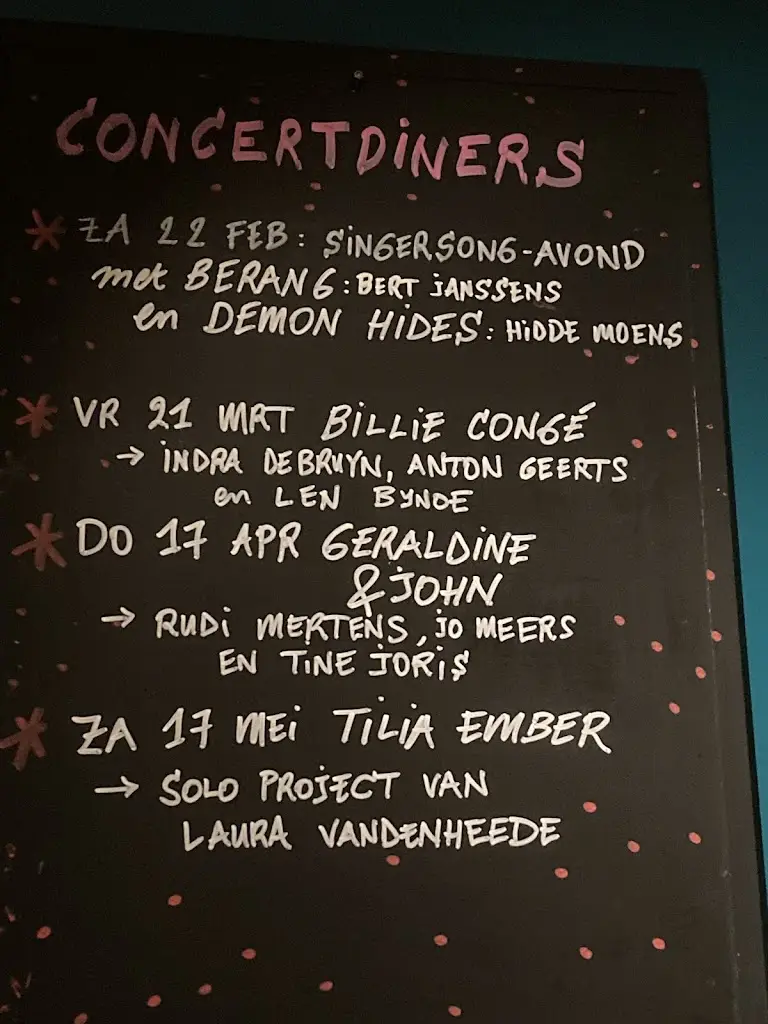 CONCERTDINERS
* ZA 22 FEB: SINGERSONG-AVOND
met BERANG: BERT JANSSENS
en DEMON HIDES: HIDDE MOENS
* VR 21 MRT BILLIE CONGÉ
→ INDRA DE BRUYN, ANTON GEERTS
en LEN BYNDE
* DO 17 APR GERALDINE
& JOHN
→ RUDI MERTENS, JO MEERS
EN TINE JORIS
* ZA 17 MEI TILIA EMBER
→ SOLO PROJECT VAN
LAURA VANDENHEEDE